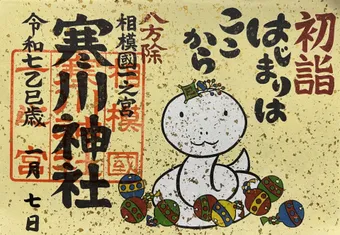 初詣
はじまりは
ここ
から
八方除
相模國一之宮
寒川神社
令和七乙巳歳 一月 七日